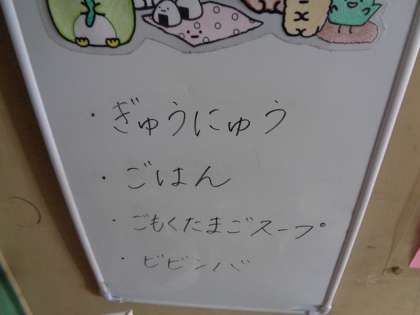 ・ぎゅうにゅう
・ごはん
・ごもくたまごスープ
・ビビンバ